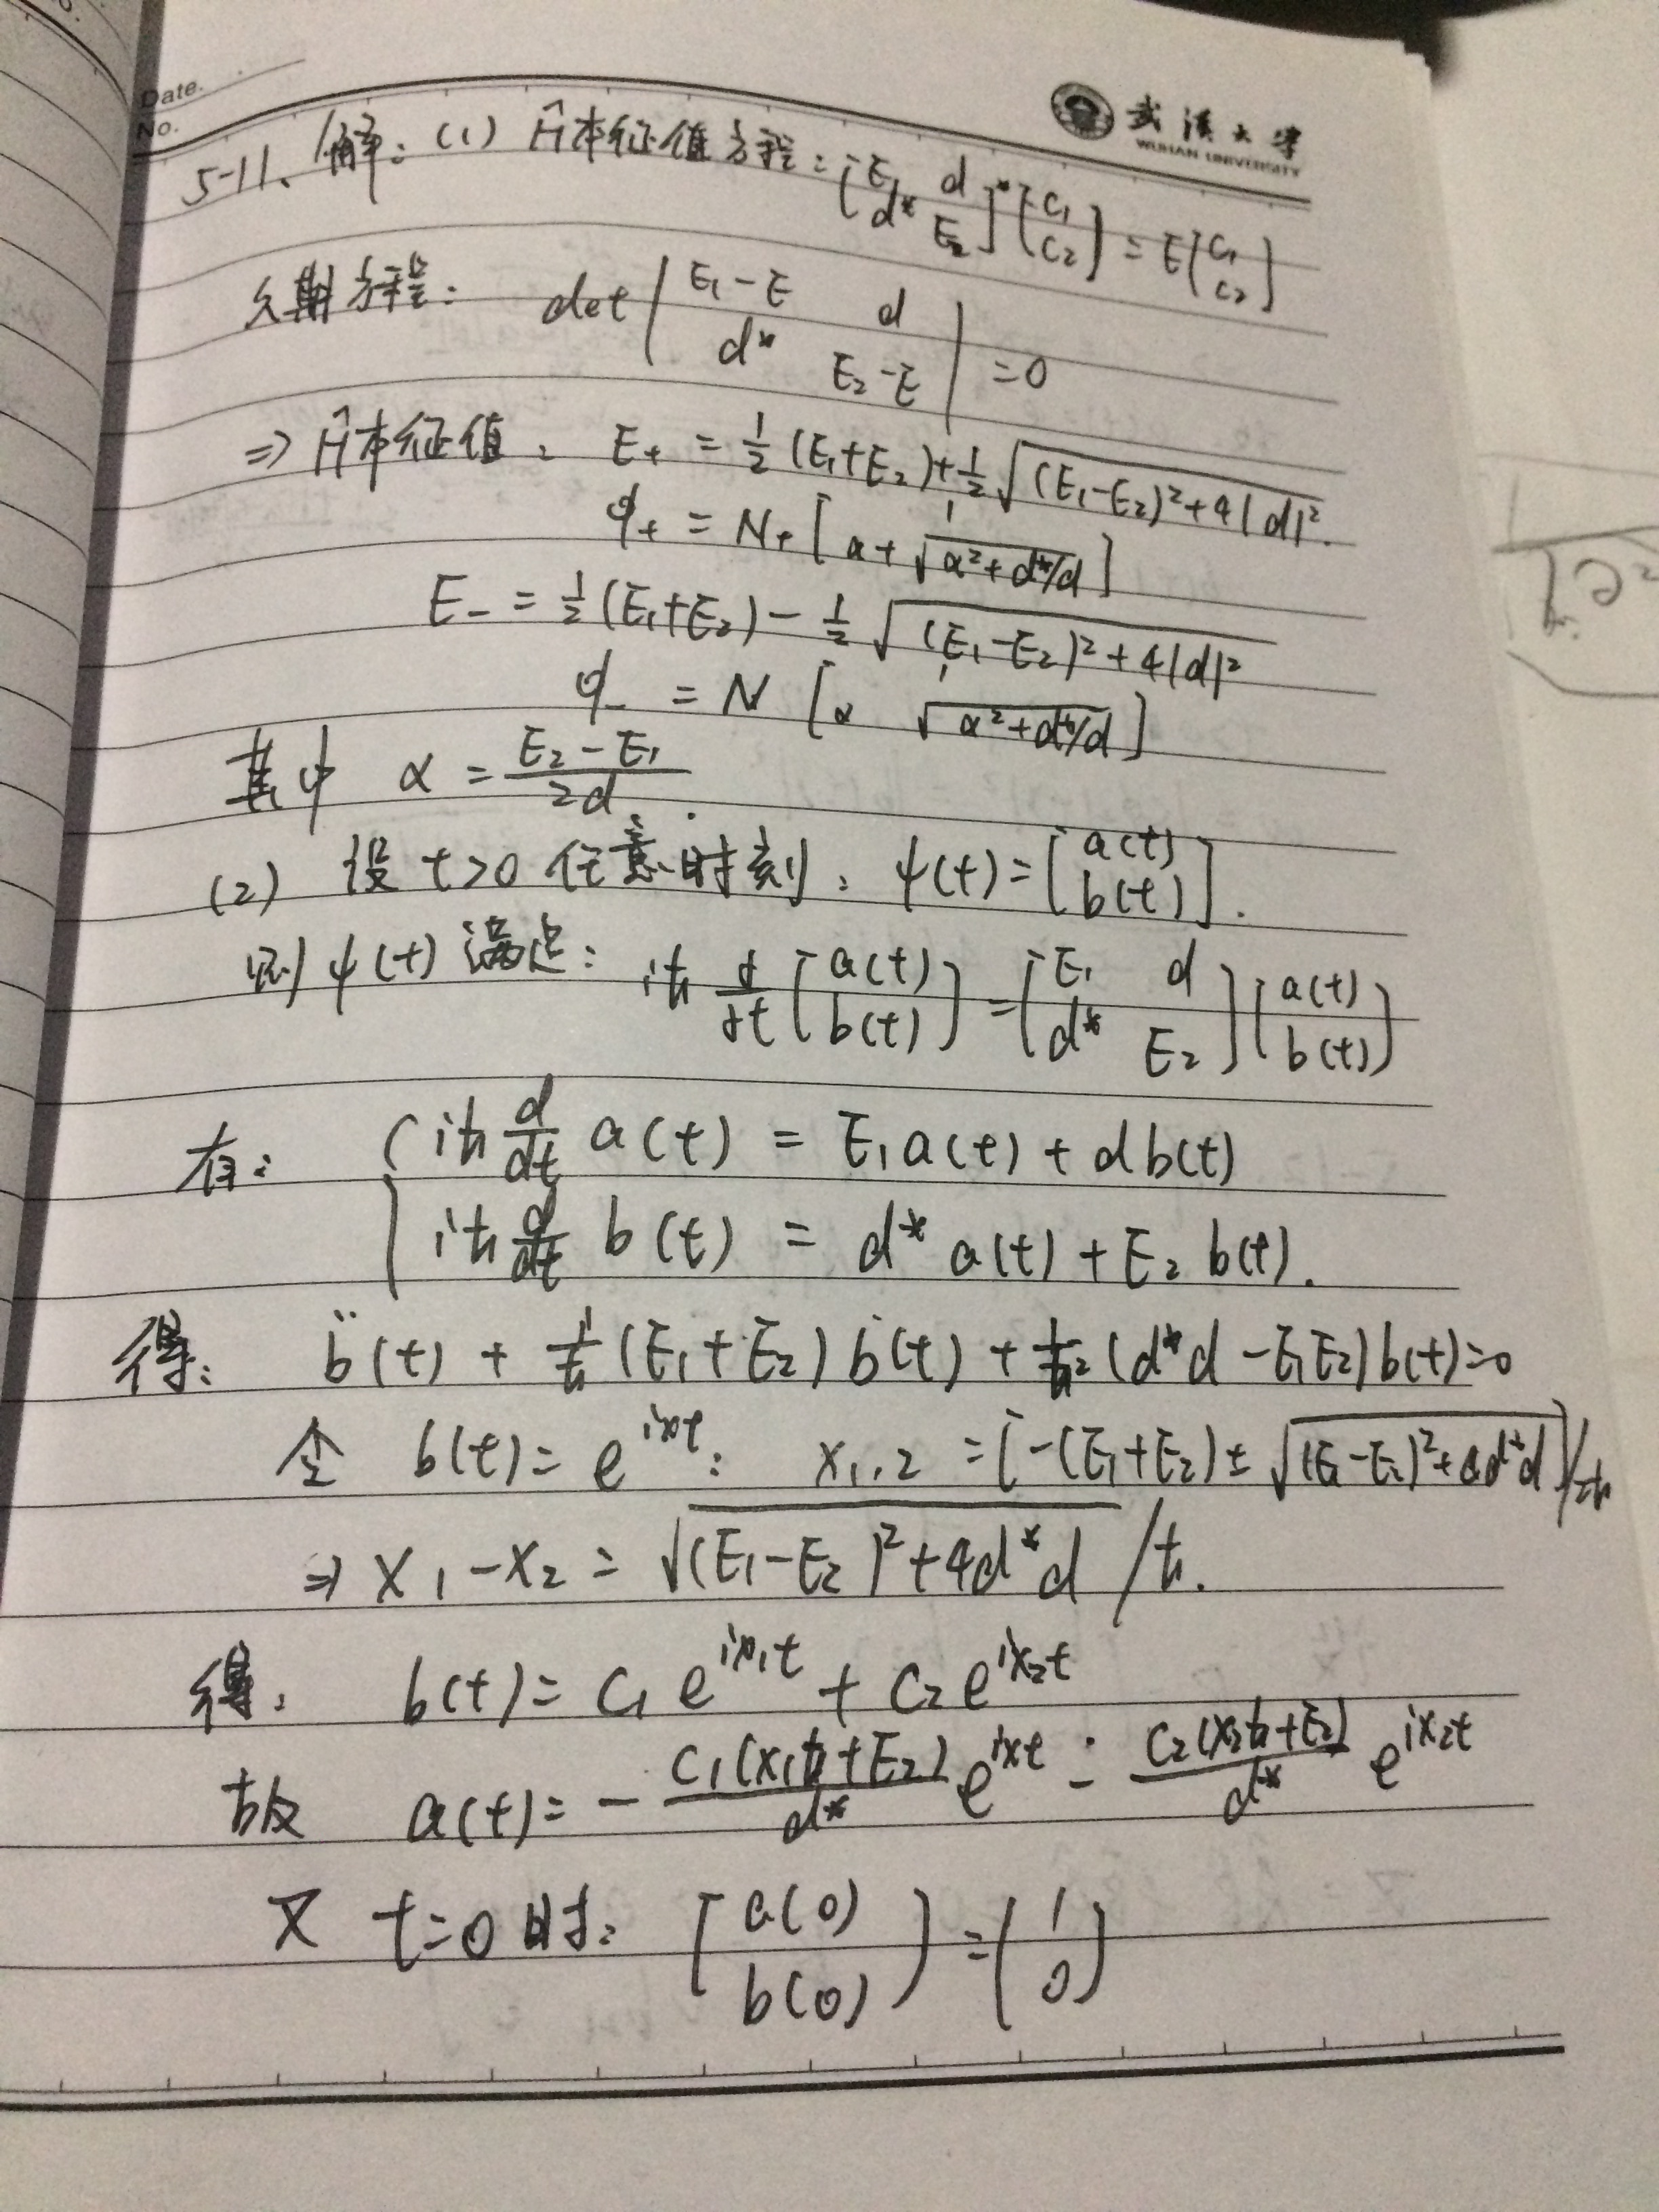 Date.
No.
武汉大学
WUHAN UNIVERSITY
5-11、解：(1) Ĥ本征值方程：[E₁ d
d* E₂] [C₁
C₂] = E[C₁
C₂]
久期方程： det | E₁-E d
d* E₂-E | =0
⇒ Ĥ本征值： E₊ = ½(E₁+E₂)+½√((E₁-E₂)²+4|d|²).
φ₊ = N₊ [ 1
α+ √(α²+d*/d) ]
E₋ = ½(E₁+E₂) - ½√((E₁-E₂)²+4|d|²)
φ₋ = N [ 1
α √(α²+d*/d) ]
其中 α = (E₂-E₁)/2d .
(2) 设 t>0 任意时刻： ψ(t)=[a(t)
b(t)].
则ψ(t)满足： iħ d/dt [a(t)
b(t)] = [E₁ d
d* E₂] [a(t)
b(t)]
有： { iħ d/dt a(t) = E₁a(t) + d b(t)
iħ d/dt b(t) = d* a(t) + E₂ b(t).
得： b̈(t) + i/ħ (E₁+E₂) ḃ(t) + 1/ħ² (d*d - E₁E₂) b(t)=0
令 b(t)= e^{ixt}: x₁,₂ = [-(E₁+E₂) ± √((E₁-E₂)²+4d*d)]/2ħ
⇒ x₁-x₂ = √((E₁-E₂)²+4d*d) /ħ.
得： b(t)= C₁ e^{ix₁t} + C₂ e^{ix₂t}
故 a(t)= - C₁(x₁ħ+E₂)/d* e^{ixt} - C₂(x₂ħ+E₂)/d* e^{ix₂t}
又 t=0时： [a(0)
b(0)] = (1
0)